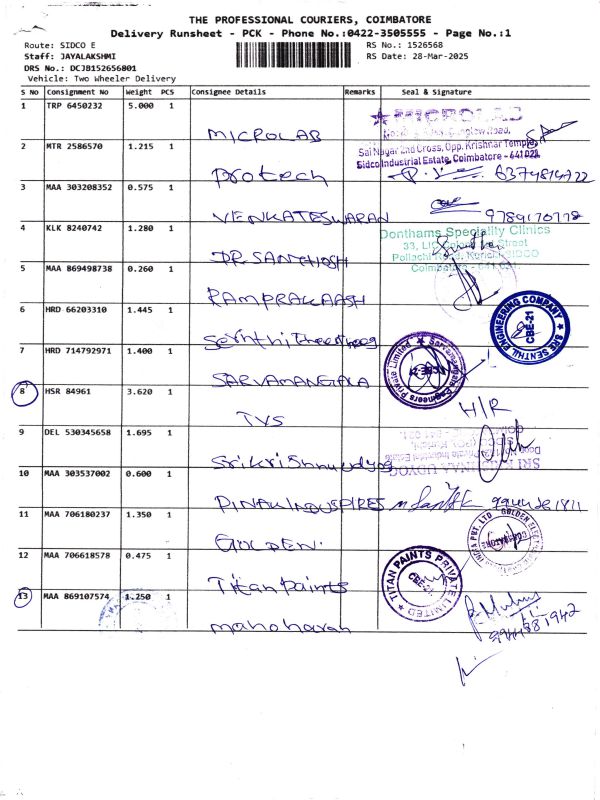 THE PROFESSIONAL COURIERS, COIMBATORE
Delivery Runsheet - PCK - Phone No.:0422-3505555 - Page No.:1
Route: SIDCO E
RS No.: 1526568
Staff: JAYALAKSHMI
RS Date: 28-Mar-2025
DRS No.: DCJB152656801
Vehicle: Two Wheeler Delivery
S No Consignment No Weight PCS Consignee Details Remarks Seal & Signature
1 TRP 6450232 5.000 1
MICROLAB
MICROLAB
2 MTR 2586570 1.215 1
Sai Nagar 2nd Cross, Opp. Krishnar Temple,
Sidco Industrial Estate, Coimbatore - 641 021.
Protech
3 MAA 303208352 0.575 1
VENKATESWARAN 9789170778
4 KLK 8240742 1.280 1
Donthams Speciality Clinics
DR SANTHOSH
5 MAA 869498738 0.260 1
RAMPRAKAASH
6 HRD 66203310 1.445 1
SREE SENTHIL ENGINEERING COMPANY
CBE-21
7 HRD 714792971 1.400 1
Sarvamangala Engineers Private Limited
SARVAMANGALA
8 HSR 84961 3.620 1
H/R
TVS
9 DEL 530345658 1.695 1
Srikrishnaudyog
10 MAA 303537002 0.600 1
11 MAA 706180237 1.350 1
GOLDEN
12 MAA 706618578 0.475 1
TITAN PAINTS PRIVATE LIMITED
CBE-21
Titan Paints
13 MAA 869107574 1.250 1
manoharan
9944881942